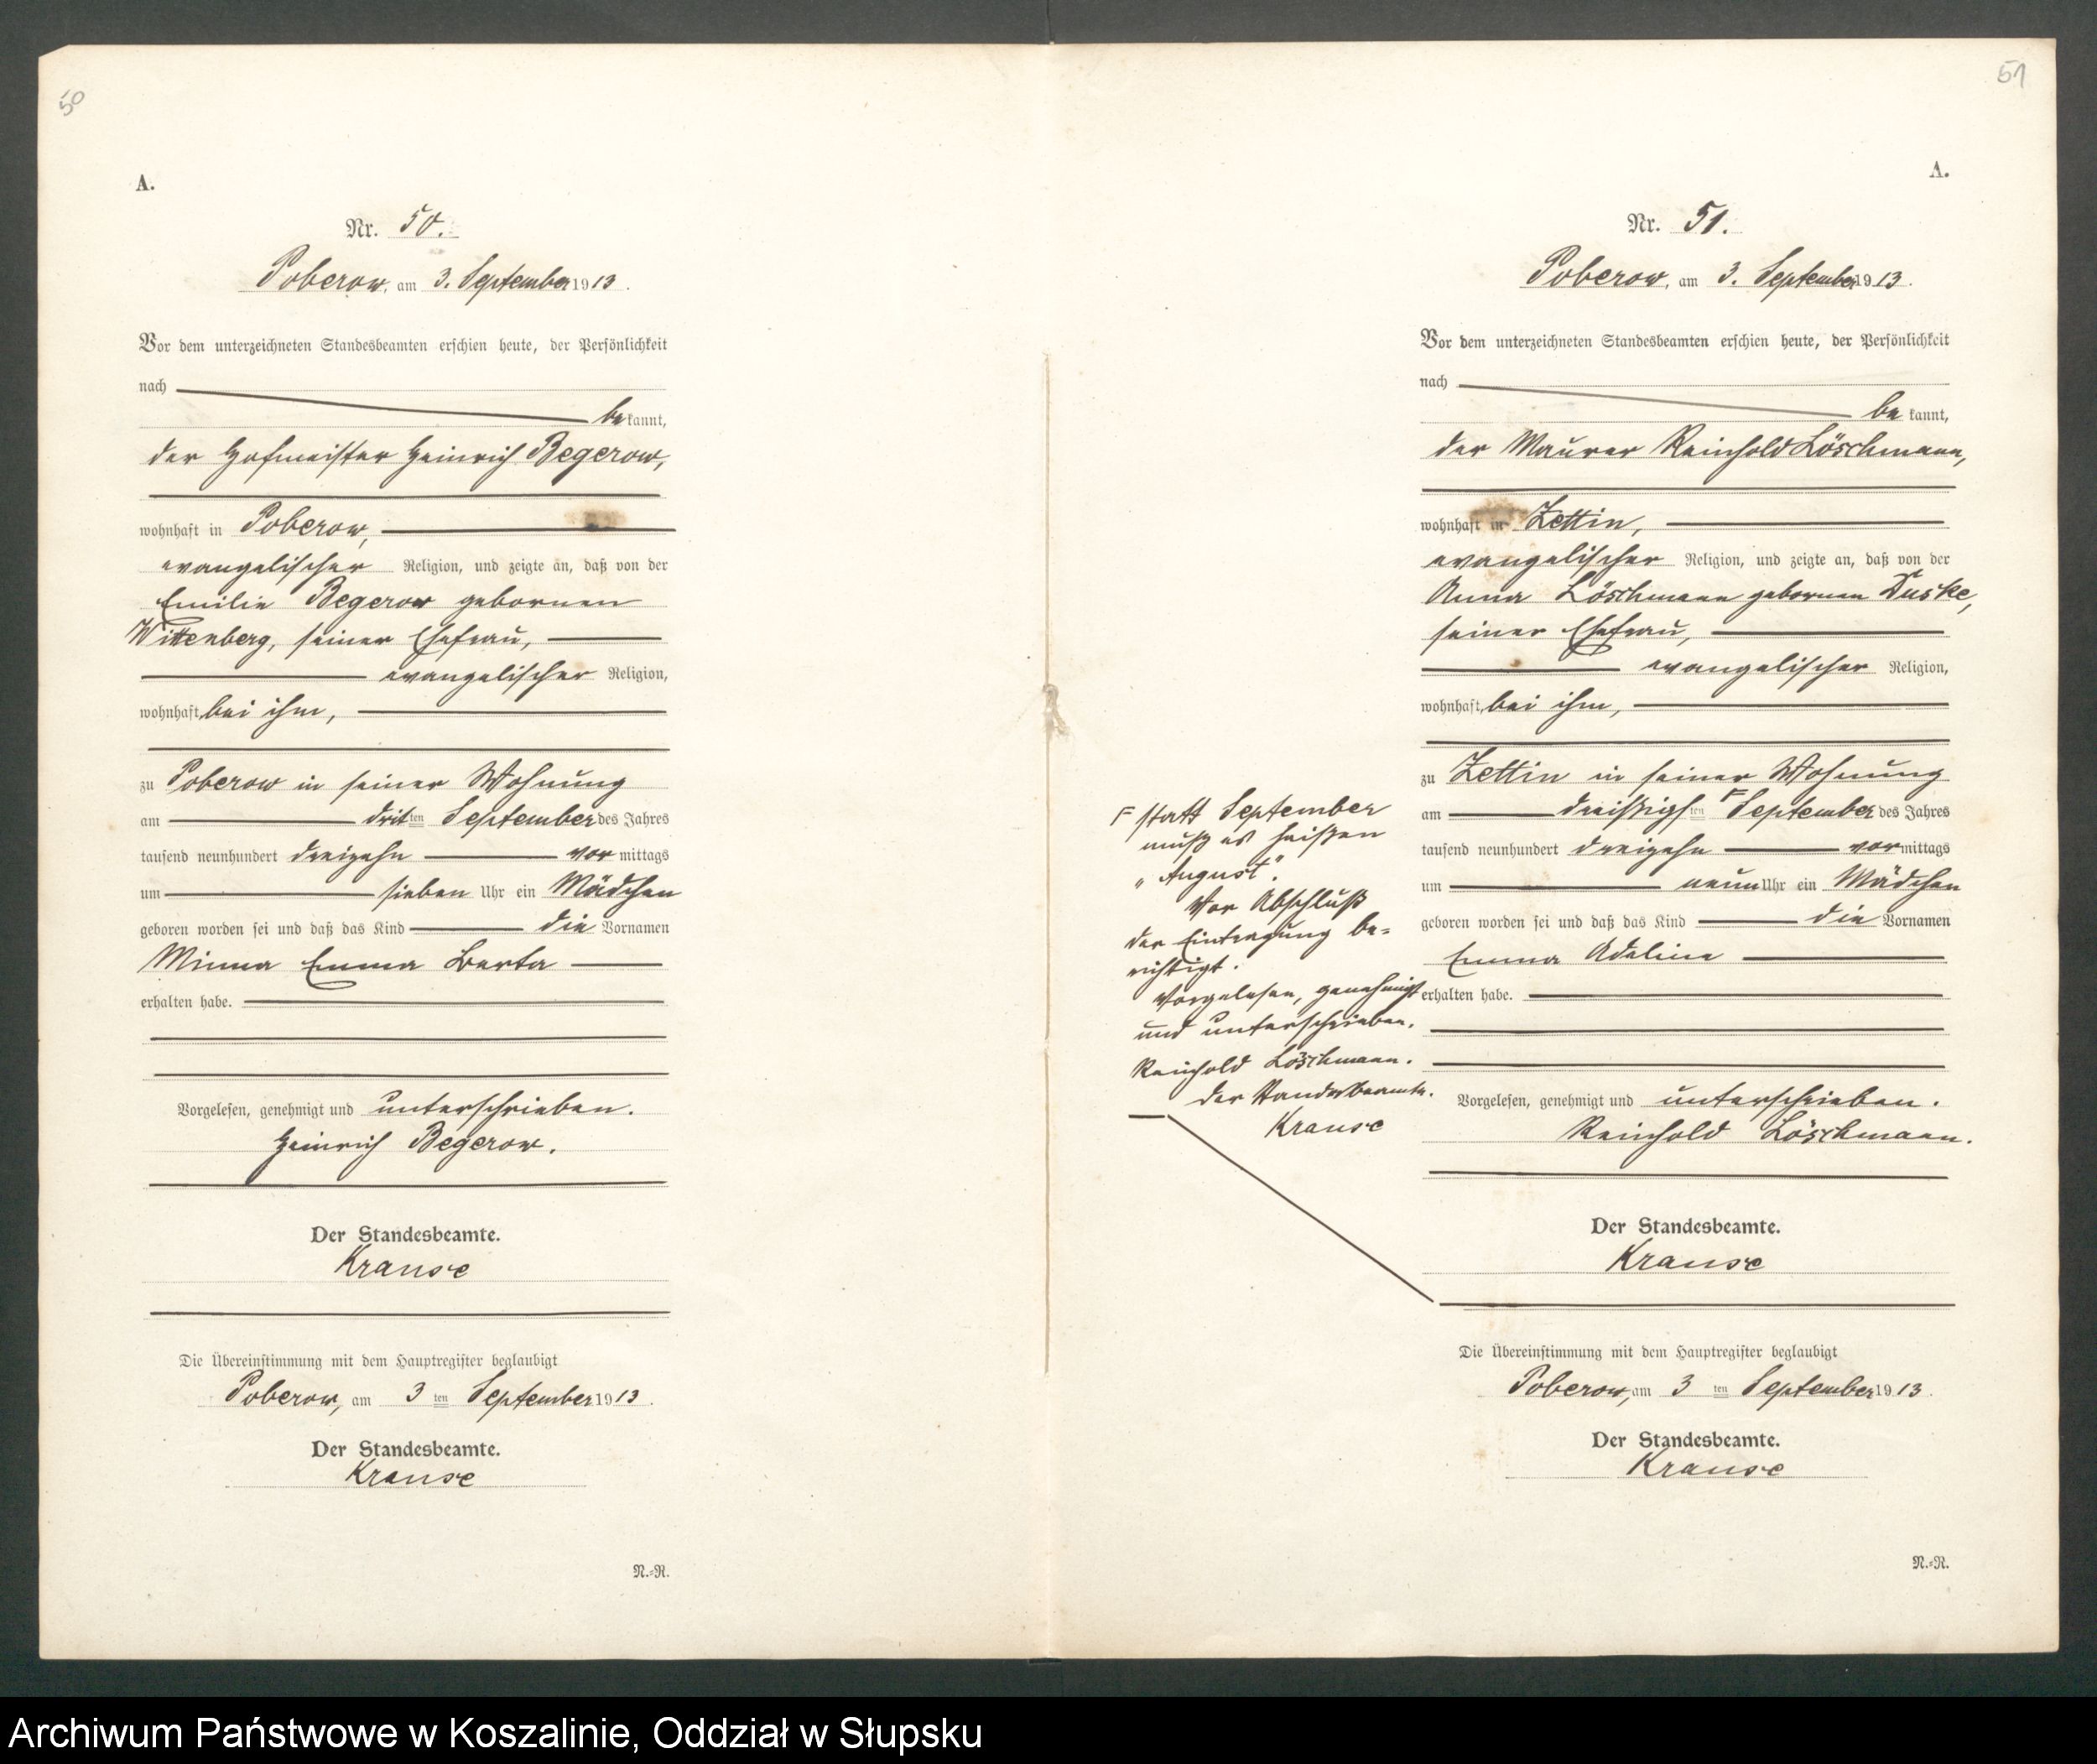 50
A.
Nr. 50.
Poberow, am 3. September 1913.
Vor dem unterzeichneten Standesbeamten erschien heute, der Persönlichkeit
nach
be kannt,
der Hofmeister Heinrich Begerow,
wohnhaft in Poberow,
evangelischer Religion, und zeigte an, daß von der
Emilie Begerow gebornen
Wittenberg, seiner Ehefrau,
evangelischer Religion,
wohnhaft bei ihm,
zu Poberow in seiner Wohnung
am dritten September des Jahres
tausend neunhundert dreizehn vormittags
um sieben Uhr ein Mädchen
geboren worden sei und daß das Kind die Vornamen
Minna Emma Berta
erhalten habe.
Vorgelesen, genehmigt und unterschrieben.
Heinrich Begerow.
Der Standesbeamte.
Krause
Die Übereinstimmung mit dem Hauptregister beglaubigt
Poberow, am 3 ten September 1913.
Der Standesbeamte.
Krause
N.-R.
51
A.
Nr. 51.
Poberow, am 3. September 1913.
Vor dem unterzeichneten Standesbeamten erschien heute, der Persönlichkeit
nach
be kannt,
der Maurer Reinhold Löschmann,
wohnhaft in Zettin,
evangelischer Religion, und zeigte an, daß von der
Anna Löschmann gebornen Duske,
seiner Ehefrau,
evangelischer Religion,
wohnhaft bei ihm,
zu Zettin in seiner Wohnung
am dreißigsten September des Jahres
tausend neunhundert dreizehn vormittags
um neun Uhr ein Mädchen
geboren worden sei und daß das Kind die Vornamen
Emma Adeline
erhalten habe.
Vorgelesen, genehmigt und unterschrieben.
Reinhold Löschmann.
statt September
muß es heißen
„August".
Vor Abschluß
der Eintragung be=
richtigt.
Vorgelesen, genehmigt
und unterschrieben.
Reinhold Löschmann.
Der Standesbeamte.
Krause
Der Standesbeamte.
Krause
Die Übereinstimmung mit dem Hauptregister beglaubigt
Poberow, am 3 ten September 1913.
Der Standesbeamte.
Krause
N.-R.
Archiwum Państwowe w Koszalinie, Oddział w Słupsku